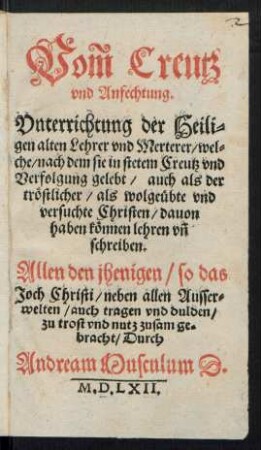 Vom̃ Creutz
vnd Anfechtung.
Vnterrichtung der Heili-
gen alten Lehrer vnd Merterer/ wel-
che/ nach dem sie in stetem Creutz vnd
Verfolgung gelebt/ auch als der
tröstlicher/ als wolgeübte vnd
versuchte Christen/ dauon
haben können lehren vñ
schreiben.
Allen den jhenigen/ so das
Joch Christi/ neben allen Ausser-
welten/ auch tragen vnd dulden/
zu trost vnd nutz zusam ge-
bracht/ Durch
Andream Musculum D.
M.D.LXII.